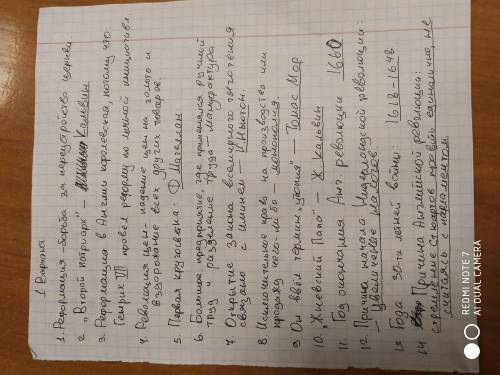 I Вариант.
1. Реформация - борьба за переустройство церкви
2. "Второй патриарх" - Кальвин
3. Реформация в Англии королевская, потому что
Генрих VIII провёл реформу по личной инициативе.
4. Революция цен - падение цен на золото и
вздорожание всех других товаров
5. Первая кругосветка: Магеллан
6. Большое предприятие, где применялся ручной
труд и разделение труда - мануфактура
7. Открытие закона всемирного тяготения
связано с именем - И. Ньютон.
8. Исключительное право на производство или
продажу чего-либо - монополия.
9. Он ввёл термин "утопия" - Томас Мор
10. "Женевский Папа" - Ж. Кальвин
11. Год окончания Анг. революции 1660
12. Причина начала Нидерландской революции:
- увеличение налогов
13. Года 30-ти летней войны: 1618-1648
14. Причина Английской революции:
стремление Стюартов править единолично, не
считаясь с парламентом.
REDMI NOTE 7
AI DUAL CAMERA